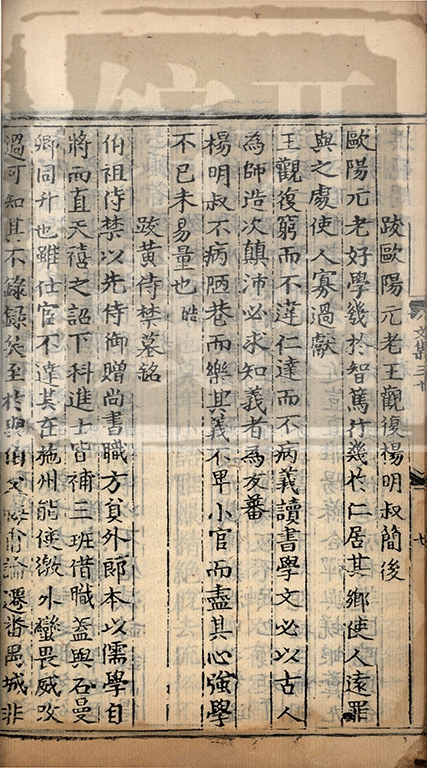 跋歐陽元老王觀復楊明叔簡後
歐陽元老好學幾於智篤行幾於仁居其鄉使人遠罪
與之處使人寡過獻
王觀復窮而不違仁達而不病義讀書學文必以古人
為師造次顛沛必求知義者為友蕃
楊明叔不病陋巷而樂其義不卑小官而盡其心強學
不已未易量也皓
跋黃侍禁墓銘
伯祖侍禁以先侍御贈尚書職方員外郎本以儒學自
將而直天禧之詔下科進士皆補三班借職蓋與石曼
卿同升也雖仕官不達其在施州能使徼外蠻畏威改
過可知其不錄錄矣至於與伯父論遷番禺城非
文集三十